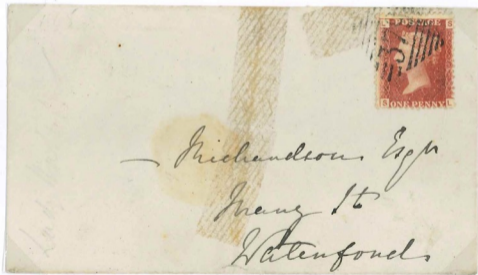 POSTAGE
ONE PENNY
— Richardson Esqr
Mary St
Waterford